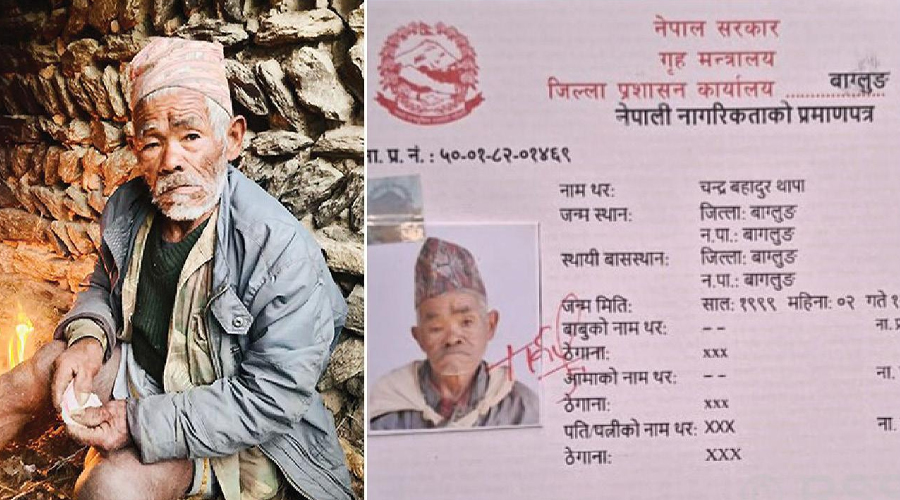 नेपाल सरकार
गृह मन्त्रालय
जिल्ला प्रशासन कार्यालय ........................ बाग्लुङ
नेपाली नागरिकताको प्रमाणपत्र
ना. प्र. नं. : ५०-०१-८२-०१४६९
नाम थर: चन्द्र बहादुर थापा
जन्म स्थान: जिल्ला: बाग्लुङ
न.पा.: बागलुङ
स्थायी बासस्थान: जिल्ला: बाग्लुङ
न.पा.: बागलुङ
जन्म मिति: साल: १९९९ महिना: ०२ गते १
बाबुको नाम थर: -- ना. प्र
ठेगाना: xxx
आमाको नाम थर: -- ना.
ठेगाना: xxx
पति/पत्नीको नाम थर: XXX ना.
ठेगाना: XXX